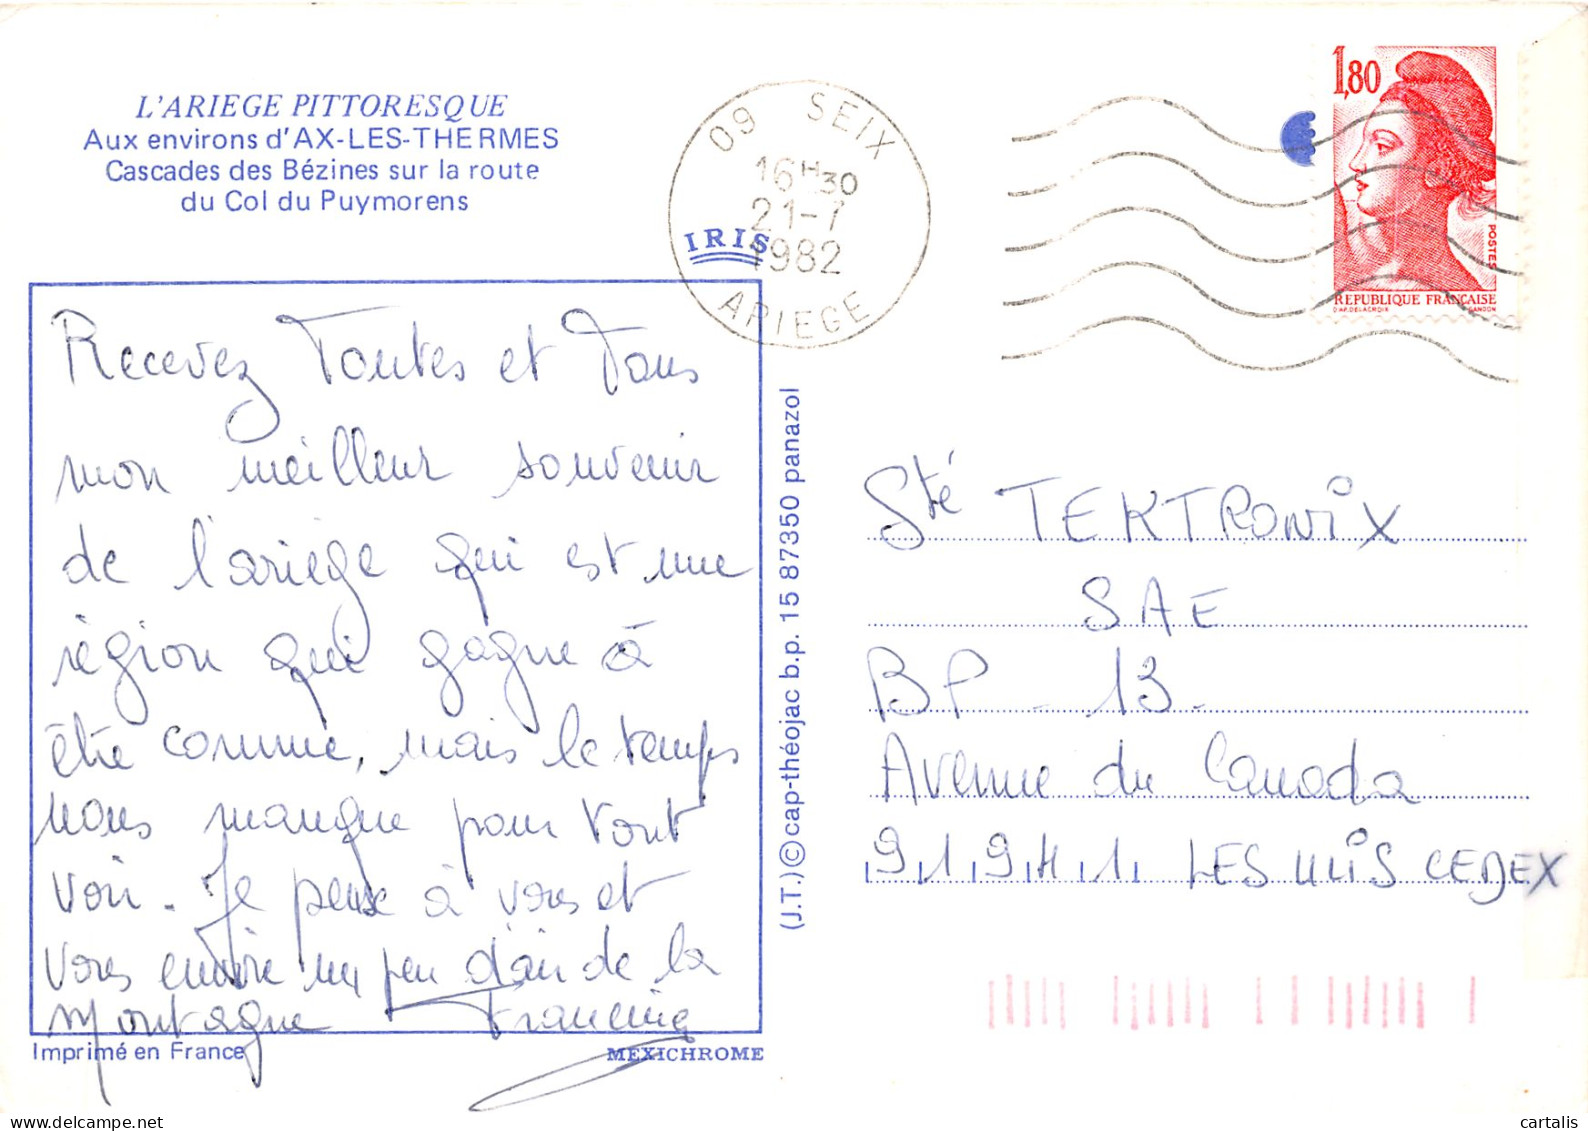 L'ARIEGE PITTORESQUE
Aux environs d'AX-LES-THERMES
Cascades des Bézines sur la route
du Col du Puymorens
09 SEIX
16H30
21-7
1982
ARIEGE
IRIS
1,80
POSTES
REPUBLIQUE FRANÇAISE
D'AP. DELACROIX GANDON
Recevez Toutes et Tous
mon meilleur souvenir
de l'ariège qui est une
région qui gagne à
être connue, mais le temps
nous manque pour tout
voir. Je pense à vous et
vous envoie un peu d'air de la
Montagne Francine
(J.T.) © cap-théojac b.p. 15 87350 panazol
Sté TEKTRONIX
SAE
BP - 13.
Avenue du Canada
91941 LES ULIS CEDEX
Imprimé en France
MEXICHROME
cartalis